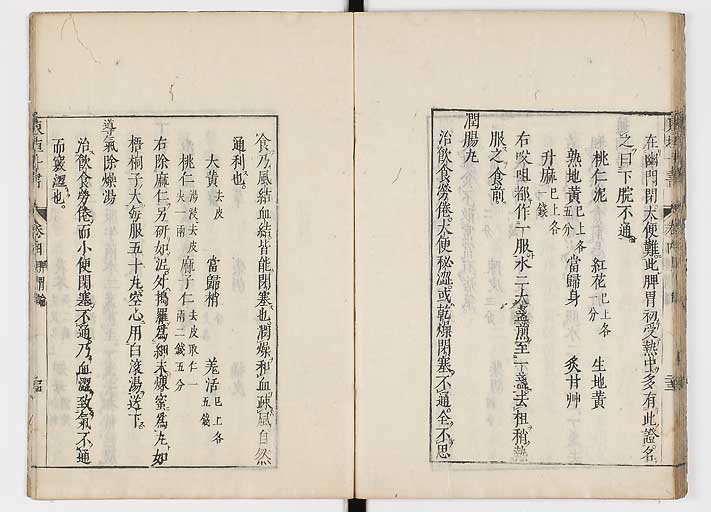 在幽門閉大便難此脾胃初受熱中多有此證名
之曰下脘不通
桃仁泥 紅花已上各一分 生地黄
熟地黄已上各五分 當歸身 炙甘艸
升麻已上各一錢
右㕮咀都作一服水二大盞煎至一盞去柤稍熱
服之食前
潤腸丸
治飲食勞倦大便秘澀或乾燥閉塞不通全不思
食乃風結血結皆能閉塞也潤燥和血疎風自然
通利也
大黄去皮 當歸梢 羗活已上各五錢
桃仁湯浸去皮尖一兩 麻子仁去皮取仁一兩二錢五分
右除麻仁另研如泥外搗羅爲細末煉蜜爲丸如
梧桐子大每服五十丸空心用白滚湯送下
導氣除燥湯
治飲食勞倦而小便閉塞不通乃血澀致氣不通
而竅澀也
東垣十書 卷四